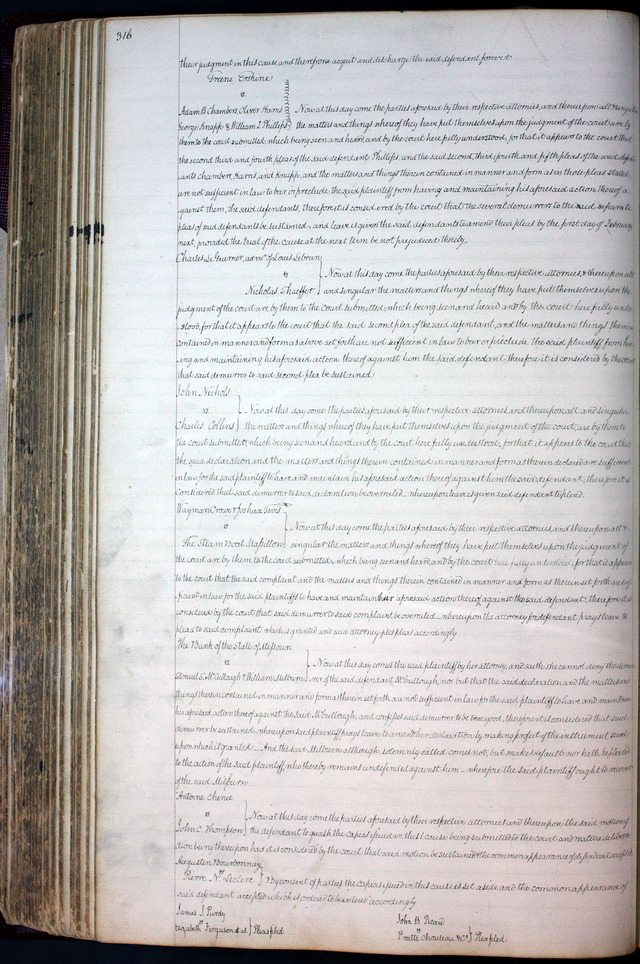 316
their judgment in this cause and therefrom acquit and discharge the said defendant forever.
Greene Erskine
vs
Adam B Chambers, Oliver Harris Now at this day come the parties aforesaid by their respective attornies, and thereupon all & singular
George Knapp & William L Phillips the matters and things whereof they have put themselves upon the judgment of the court are by
them to the court submitted, which being seen and heard, and by the court here fully understood, for that it appears to the court that
the second third and fourth pleas of the said defendant Phillips, and the said second, third, fourth, and fifth pleas of the said defend-
ants Chambers, Harris, and Knapp, and the matters and things therein contained in manner and form as in those pleas stated,
are not sufficient in law to bar or preclude the said plaintiff from having and maintaining his aforesaid action thereof a-
gainst them, the said defendants, therefore it is considered by the court that the several demurrers to the said separate
pleas of said defendants be sustained, and leave is given the said defendants to amend their pleas by the first day of February
next, provided the trial of the cause at the next term be not prejudiced thereby.
Charles Le Guerrier, admr of Louis Lebrun
vs Now at this day come the parties aforesaid by their respective attornies, & thereupon all
Nicholas Shaeffer and singular the matters and things whereof they have put themselves upon the
judgment of the court are by them to the court submitted, which being seen and heard and by the court here fully under-
stood, for that it appears to the court that the said second plea of the said defendant, and the matters and things therein
contained in manner and form as above set forth are not sufficient in law to bar or preclude the said plaintiff from hav-
ing and maintaining his aforesaid action thereof against him the said defendant, therefore it is considered by the court
that said demurrer to said second plea be sustained
John Nichols
vs Now at this day come the parties aforesaid by their respective attornies and thereupon all and singular
Charles Collins the matters and things whereof they have put themselves upon the judgment of the court, are by them to
the court submitted, which being seen and heard and by the court here fully understood, for that it appears to the court that
the said declaration and the matters and things therein contained in manner and form as therein declared are sufficient
in law for the said plaintiff to have and maintain his aforesaid action thereof against him the said defendant, therefore it is
considered that said demurrer to said declaration be overruled, whereupon leave is given said defendant to plead.
Wayman Crow & Joshua Tevis
vs Now at this day come the parties aforesaid by their respective attornies, and thereupon all &
The Steam Boat singular the matters and things whereof they have put themselves upon the judgment of
the court are by them to the court submitted, which being seen and heard, and by the court here fully understood, for that it appears
to the court that the said complaint and the matters and things therein contained in manner and form as therein set forth are suf-
ficient in law for the said plaintiffs to have and maintain their aforesaid action thereof against the said defendant, therefore it is
considered by the court that said demurrer to said complaint be overruled, whereupon the attorney for defendant prays leave to
plead to said complaint which is granted and said attorney files pleas accordingly
The Bank of the State of Missouri
vs Now at this day comes the said plaintiff by her attorney, and saith she cannot deny the demur-
Samuel S. McCullough & William Milburn rer of the said defendant McCullough, nor but that the said declaration and the matters and
things therein contained in manner and form as therein set forth are not sufficient in law for the said plaintiff to have and maintain
her aforesaid action thereof against the said McCullough, and confesses said demurrer to be good, therefore it is considered that said
demurrer be sustained, whereupon said plaintiff prays leave to amend her declaration by making profert of the instrument sued
upon which is granted. And the said Milburn although solemnly called comes not, but makes default nor hath he pleaded
to the action of the said plaintiff, who thereby remains undefended against him, wherefore the said plaintiff ought to recover
of the said Milburn
Antoine Chenie
vs Now at this day come the parties aforesaid by their respective attornies and thereupon the said motion of
John C. Thompson the defendant to quash the capias issued in this cause being submitted to the court and mature delibera-
tion being thereupon had it is considered by the court that said motion be sustained & the common appearance of defendant accepted
Augustin Bourbonnay
vs
Pierre Nr. Leclerc By consent of parties the capias issued in this cause is set aside and the common appearance of
said defendant accepted which is ordered to be entered accordingly
James J Purdy
vs
Elizabeth Ferguson et al Pleas filed
John B. Picard
vs
Pratte Chouteau & Co Plea filed